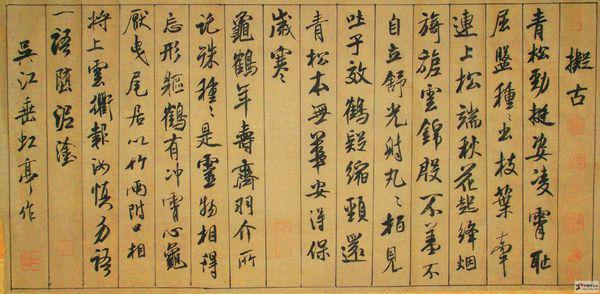 擬古
青松勁挺姿凌霄恥
屈盤種々出枝葉牽
連上松端秋花起絳烟
旖旎雲錦殷不羞不
自立舒光射丸々柏見
吐子效鶴疑縮頸還
青松本無華安得保
歲寒
龜鶴年壽齊羽介所
託殊種々是靈物相得
忘形軀鶴有冲霄心龜
厭曳尾居以竹兩附口相
將上雲衢報汝慎勿語
一語墮泥塗
吳江垂虹亭作